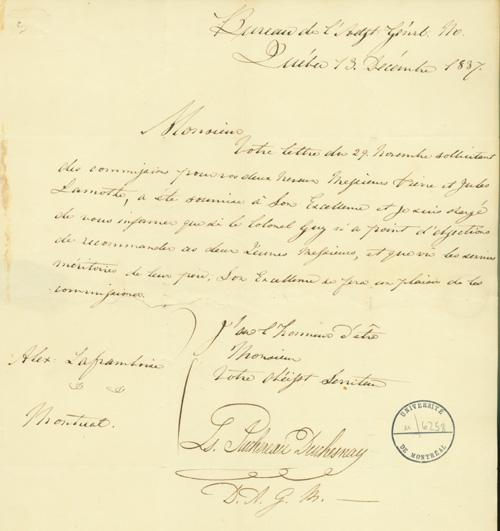 Bureau de l'Adjt. Génrl. Mc.
Québec 13. Décembre 1837.
Monsieur
Votre lettre du 29. Novembre sollicitant
des commissions pour vos deux neveux Messieurs Pierre et Jules
Lamothe, a été soumise à Son Excellence et je suis chargé
de vous informer que si le Colonel Guy n'a point d'objections
de recommander ces deux Jeunes Messieurs, et que vu les services
méritoires de leur père, Son Excellence se fera un plaisir de les
commissioner
J'ai l'honneur d'être
Monsieur
Votre Obéisst Serviteur
Alex. Laframboise
Montreal.
Ls. Juchereau Duchesnay
D. A. G. M.
UNIVERSITÉ
M 6258
DE MONTRÉAL